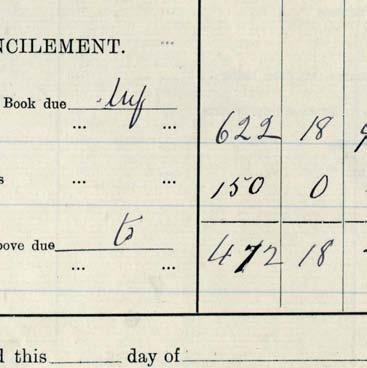 NCILEMENT. ...
Book due by
... ... 622 18 9
s ... ... 150 0
bove due to
... ... 472 18
d this day of